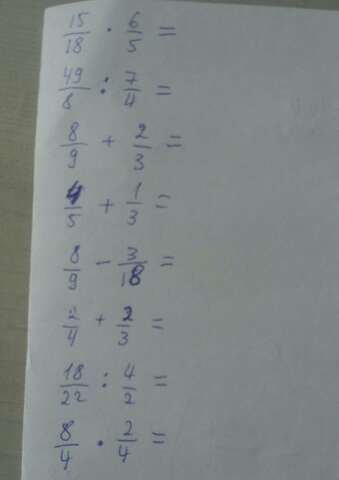 15/18 · 6/5 =
49/8 : 7/4 =
8/9 + 2/3 =
4/5 + 1/3 =
8/9 - 3/18 =
2/4 + 2/3 =
18/22 : 4/2 =
8/4 · 2/4 =